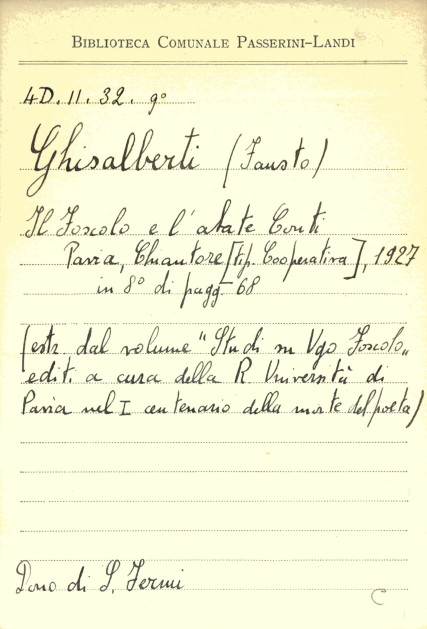 BIBLIOTECA COMUNALE PASSERINI-LANDI
4D. II. 32. 9°
Ghisalberti (Fausto)
Il Foscolo e l'abate Conti
Pavia, Chiantore [tip. Cooperativa], 1927
in 8° di pagg. 68
(estr. dal volume "Studi su Ugo Foscolo„
editi a cura della R. Università di
Pavia nel I centenario della morte del poeta)
Dono di S. Fermi
C